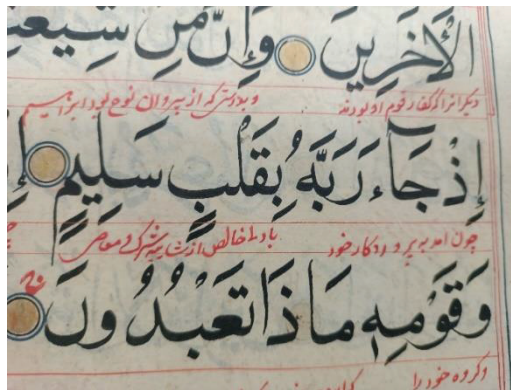 الْأَخَرِينَ وَإِنَّ مِنْ شِيعَتِ
دیگرانرا که کفار قوم او بودند وبدرستی که از پیروان نوح بود ابراهیم
إِذْ جَآءَ رَبَّهُ بِقَلْبٍ سَلِيمٍ إِ
چون آمد به پروردگار خود بادل خالص از شرک و معاصی
وَقَوْمِهِ مَاذَا تَعْبُدُونَ
وگروه خود را